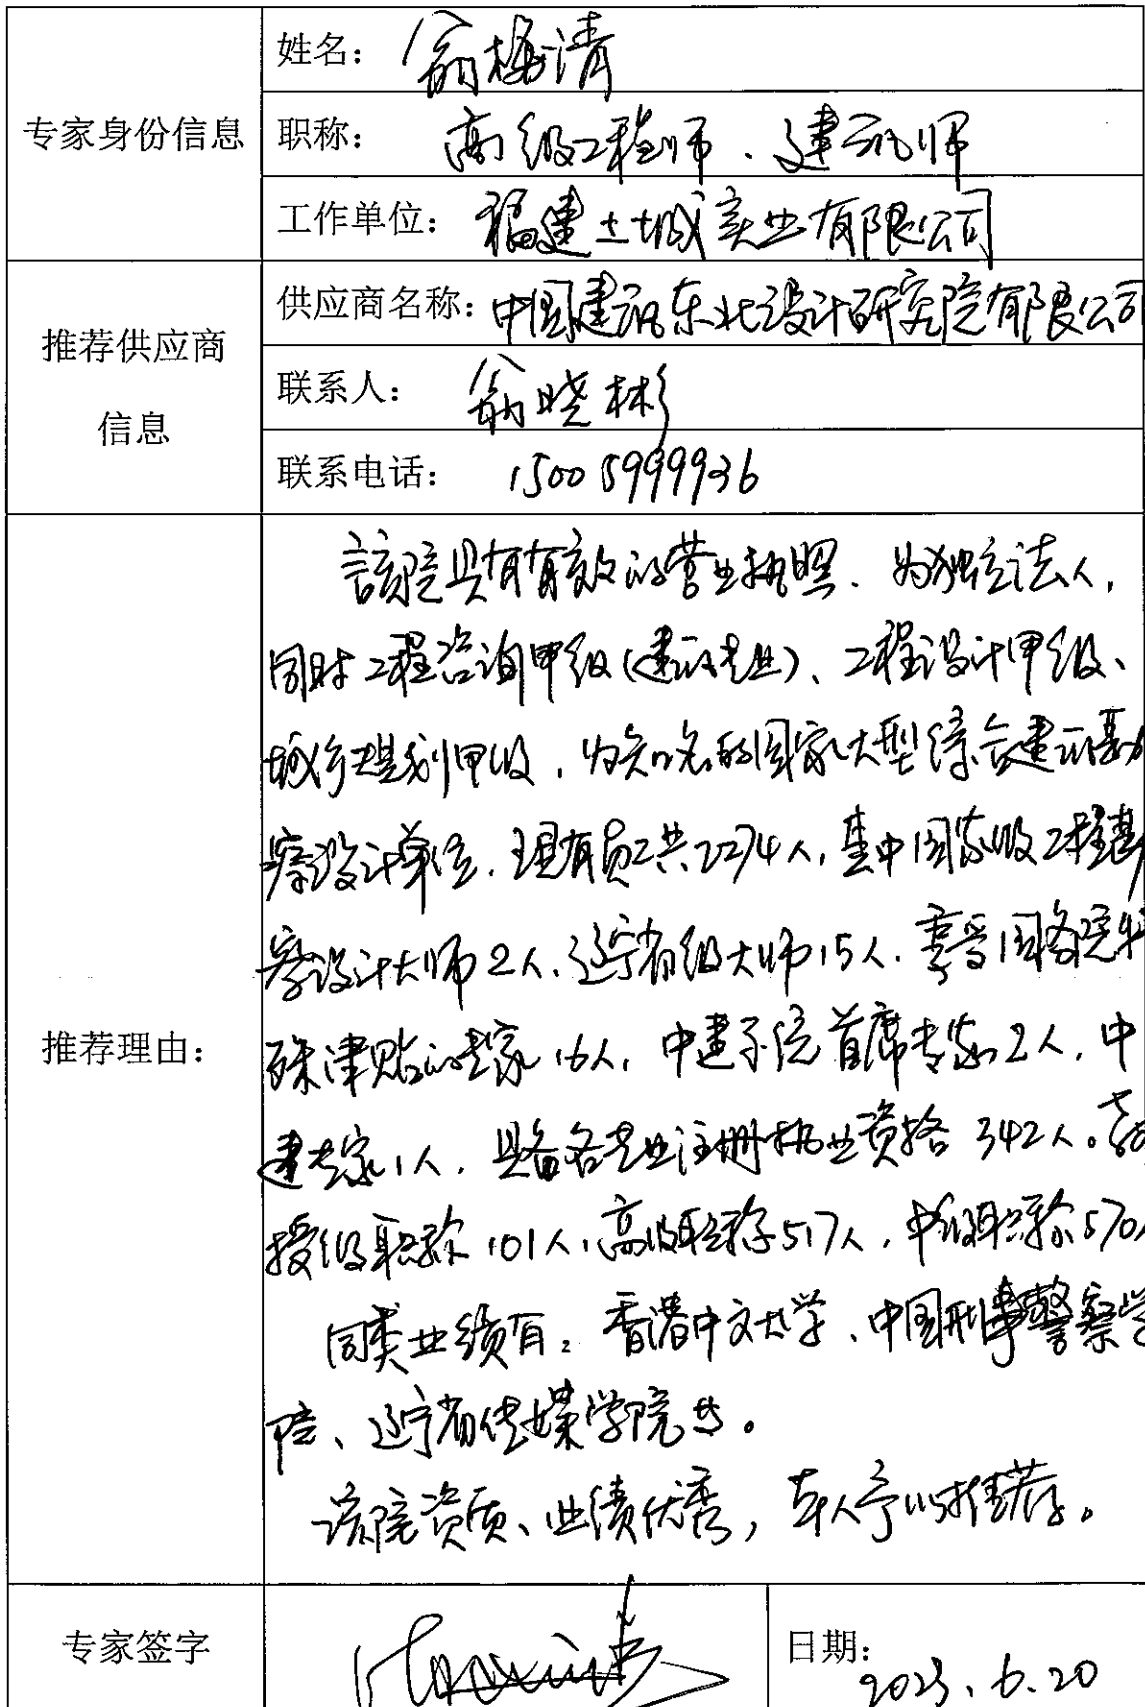 姓名：翁梅清
专家身份信息
职称：高级工程师、建筑师
工作单位：福建土城实业有限公司
供应商名称：中国建筑东北设计研究院有限公司
推荐供应商
信息
联系人：翁晓彬
联系电话：15005999936
該院具有有效的营业执照、为独立法人，
同时工程咨询甲级（建筑专业）、工程设计甲级、
城乡规划甲级，为知名的国家大型综合建筑勘
察设计单位，现有员工共2274人，其中国家级工程勘
察设计大师2人、辽宁省级大师15人，享受国务院特
殊津贴的专家16人，中建系统首席专家2人，中
建专家1人，具备各专业注册执业资格342人。教
推荐理由：
授级职称101人，高级职称517人，中级职称570人
同类业绩有：香港中文大学、中国刑事警察学
院、辽宁省传媒学院等。
该院资质、业绩优秀，本人予以推荐。
专家签字
日期：2023.6.20